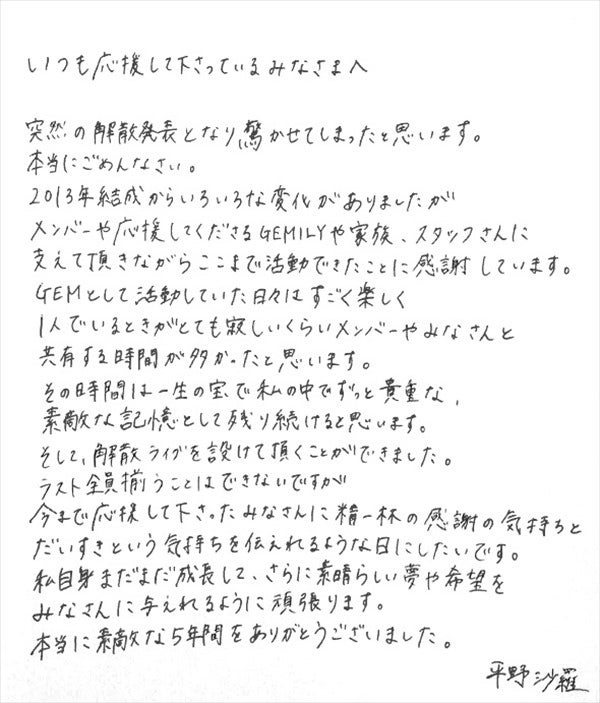 いつも応援して下さっているみなさまへ
突然の解散発表となり驚かせてしまったと思います。
本当にごめんなさい。
2013年結成からいろいろな変化がありましたが
メンバーや応援してくださるGEMILYや家族、スタッフさんに
支えて頂きながらここまで活動できたことに感謝しています。
GEMとして活動していた日々はすごく楽しく
1人でいるときがとても寂しいくらいメンバーやみなさんと
共有する時間が多かったと思います。
その時間は一生の宝で私の中でずっと貴重な、
素敵な記憶として残り続けると思います。
そして、解散ライブを設けて頂くことができました。
ラスト全員揃うことはできないですが
今まで応援して下さったみなさんに精一杯の感謝の気持ちと
だいすきという気持ちを伝えれるような日にしたいです。
私自身まだまだ成長して、さらに素晴らしい夢や希望を
みなさんに与えれるように頑張ります。
本当に素敵な5年間をありがとうございました。
平野沙羅